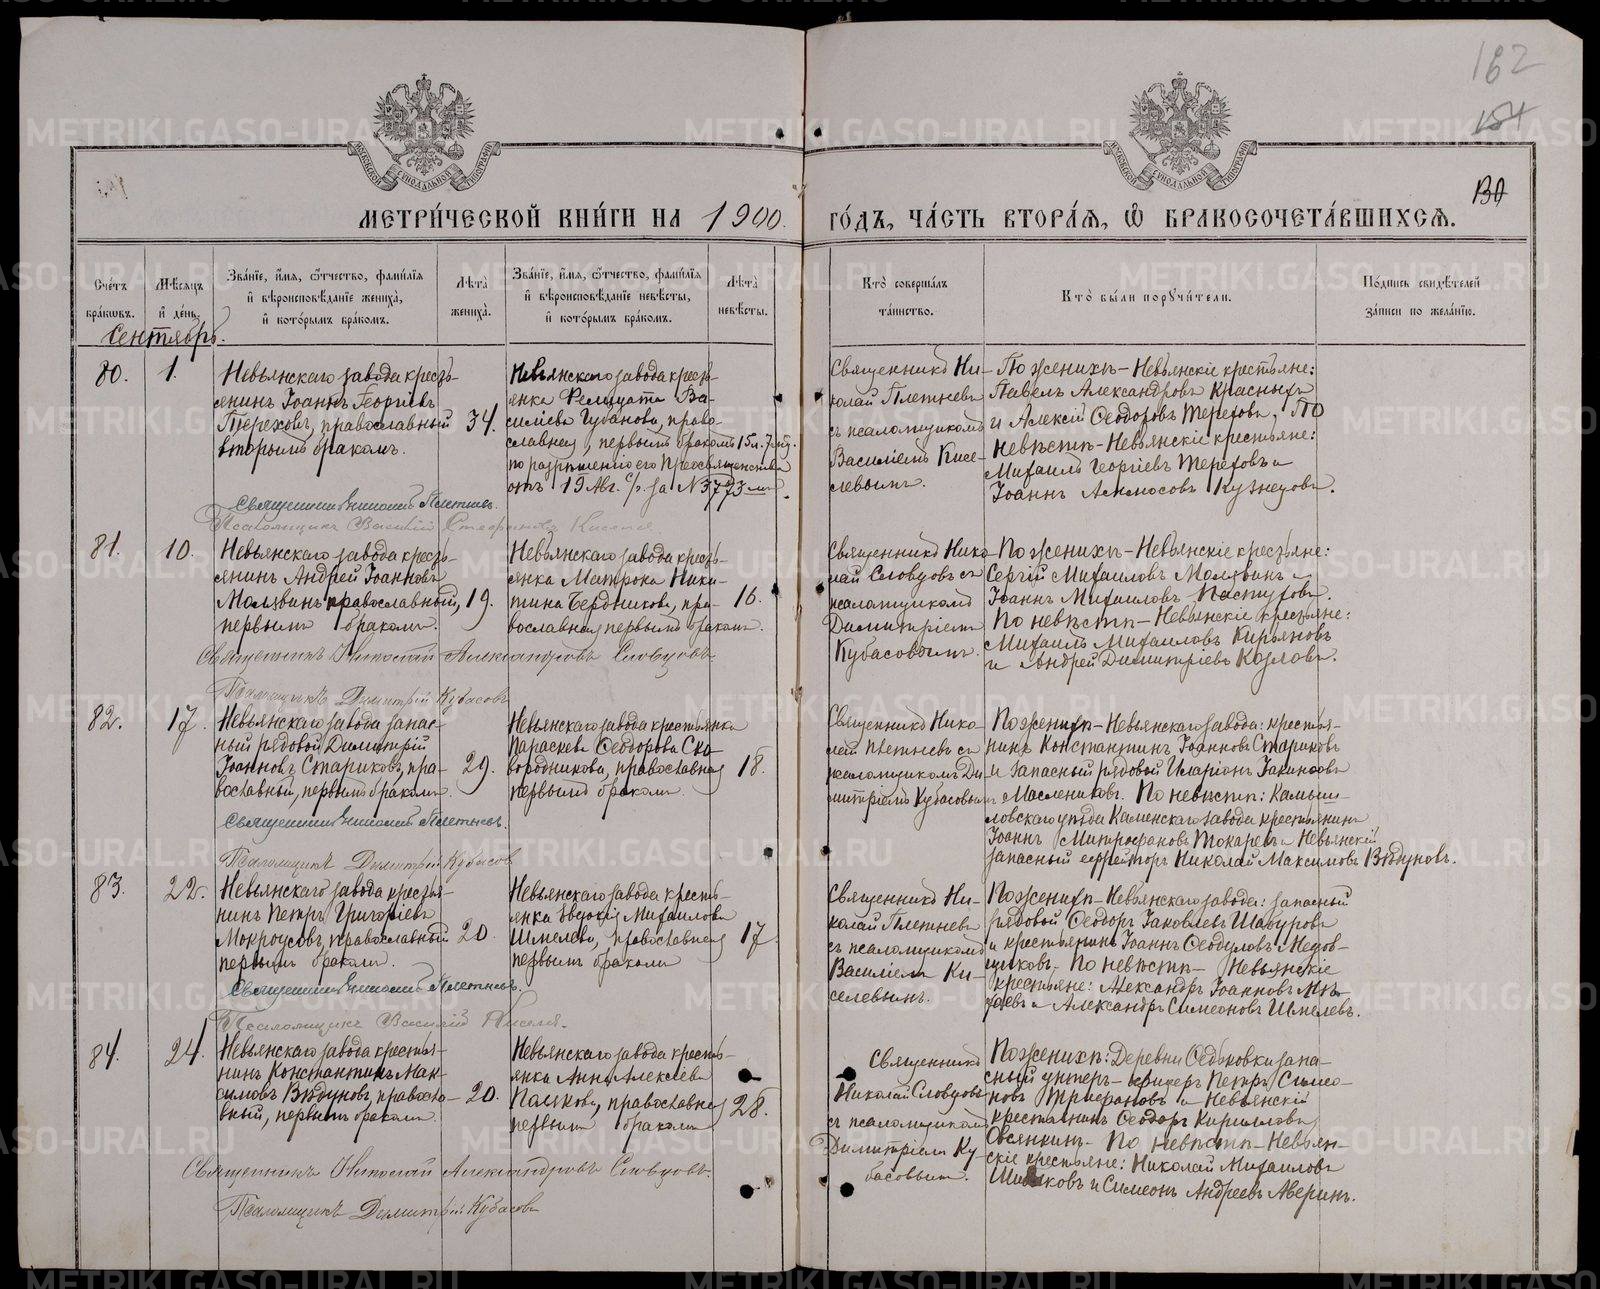 162
154
130
МЕТРИ́ЧЕСКОЙ КНИ́ГИ НА 1900 ГО́ДЪ, ЧА́СТЬ ВТОРА́Я, Ѡ БРАКОСОЧЕТА́ВШИХСЯ.
Счетъ браковъ.
Мѣсяцъ и день.
Званіе, имя, отчество, фамилія и вѣроисповѣданіе жениха, и которымъ бракомъ.
Лѣта жениха.
Званіе, имя, отчество, фамилія и вѣроисповѣданіе невѣсты, и которымъ бракомъ.
Лѣта невѣсты.
Кто совершалъ таинство.
Кто были поручители.
Подпись свидѣтелей записи по желанію.
Сентябрь.
80.
1.
Невьянскаго завода кресть-
янинъ Іоаннъ Георгіевъ
Тереховъ, православный
вторымъ бракомъ.
34.
Невьянскаго завода кресть-
янка Ва-
силіева Губанова, право-
славная, первымъ бракомъ
по разрѣшенію его Преосвященства
отъ 19 Авг. с/г. за № 3773
15 л. 7 м.
Священникъ Ни-
колай Плетневъ
съ псаломщикомъ
Василіемъ Кисе-
левымъ.
По женихѣ – Невьянскіе крестьяне:
Павелъ Александровъ Красныхъ
и Алексій Ѳеодоровъ Тереховъ. По
невѣстѣ – Невьянскіе крестьяне:
Михаилъ Георгіевъ Тереховъ и
Іоаннъ Аммосовъ Кузнецовъ.
Священникъ Николай Плетневъ.
Псаломщикъ Василій Стефановъ Киселев
81.
10.
Невьянскаго завода кресть-
янинъ Андрей Іоанновъ
Молявинъ православный,
первымъ бракомъ.
19.
Невьянскаго завода кресть-
янка Матрона Ники-
тина Бердникова, пра-
вославная первымъ бракомъ.
16.
Священникъ Нико-
лай Словцовъ съ
псаломщикомъ
Димитріемъ
Кубасовымъ.
По женихѣ – Невьянскіе крестьяне:
Сергій Михаиловъ Молявинъ и
Іоаннъ Михаиловъ Пастуховъ.
По невѣстѣ – Невьянскіе крестьяне:
Михаилъ Михаиловъ Кирьяновъ
и Андрей Димитріевъ Козловъ.
Священникъ Николай Александровъ Словцовъ
Псаломщикъ Димитрій Кубасовъ
82.
17.
Невьянскаго завода запас-
ный рядовой Димитрій
Іоанновъ Стариковъ, пра-
вославный, первымъ бракомъ.
29.
Невьянскаго завода крестьянка
Параскева Ѳеодорова Ско-
вородникова, православная
первымъ бракомъ.
18.
Священникъ Нико-
лай Плетневъ съ
псаломщикомъ Ди-
митріемъ Кубасовымъ
По женихѣ – Невьянскаго завода: кресть-
нинъ Константинъ Іоанновъ Стариковъ
и запасный рядовой Иларіонъ Іакинфовъ
Маслениковъ. По невѣстѣ: Камыш-
ловскаго уѣзда Каменскаго завода крестьянинъ
Іоаннъ Митрофановъ Токаревъ и Невьянскій
запасный ефрейторъ Николай Максимовъ Вѣдуновъ.
Священникъ Николай Плетневъ.
Псаломщикъ Димитрій Кубасов
83.
22.
Невьянскаго завода крестья-
нинъ Петръ Григоріевъ
Мокроусовъ, православный
первымъ бракомъ.
20.
Невьянскаго завода кресть-
янка Евдокія Михаилова
Шмелева, православная
первымъ бракомъ
17.
Священникъ Ни-
колай Плетневъ
съ псаломщикомъ
Василіемъ Ки-
селевымъ.
По женихѣ – Невьянскаго завода: запасный
рядовой Ѳеодоръ Іаковлевъ Шабуровъ
и крестьянинъ Іоаннъ Ѳеодуловъ Медов-
щиковъ. По невѣстѣ – Невьянскіе
крестьяне: Александръ Іоанновъ
и Александръ Симеоновъ Шмелевъ.
Священникъ Николай Плетневъ.
Псаломщикъ Василій Киселев.
84.
24.
Невьянскаго завода крестья-
нинъ Константинъ Мак-
симовъ Вѣдуновъ, правосла-
вный, первымъ бракомъ.
20.
Невьянскаго завода кресть-
янка Анна Алексіева
Полякова, православная
первымъ бракомъ
28.
Священникъ
Николай Словцовъ
съ псаломщикомъ
Димитріемъ Ку-
басовымъ.
По женихѣ: Деревни Ѳедьковки запа-
сный унтеръ-офицеръ Петръ Симео-
новъ Трифоновъ и Невьянскій
крестьянинъ Ѳеодоръ Кирилловъ
Овсянкинъ – По невѣстѣ – Невьян-
скіе крестьяне: Николай Михаиловъ
и Симеонъ Андреевъ Аверинъ.
Священникъ Николай Александровъ Словцовъ.
Псаломщикъ Димитрій Кубасовъ